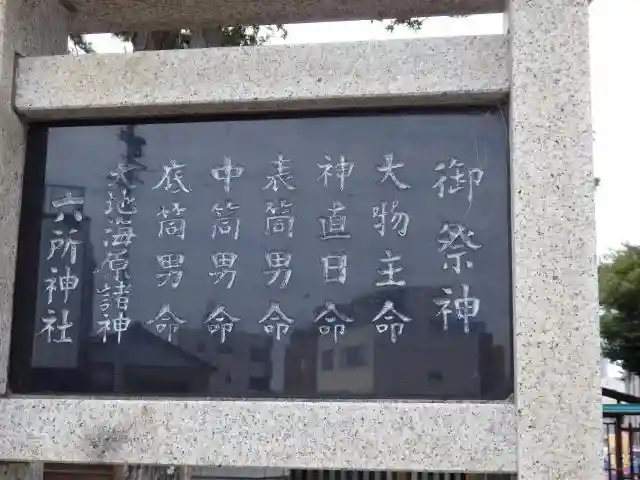 御祭神
大物主命
神直日命
表筒男命
中筒男命
底筒男命
天地海原諸神
六所神社